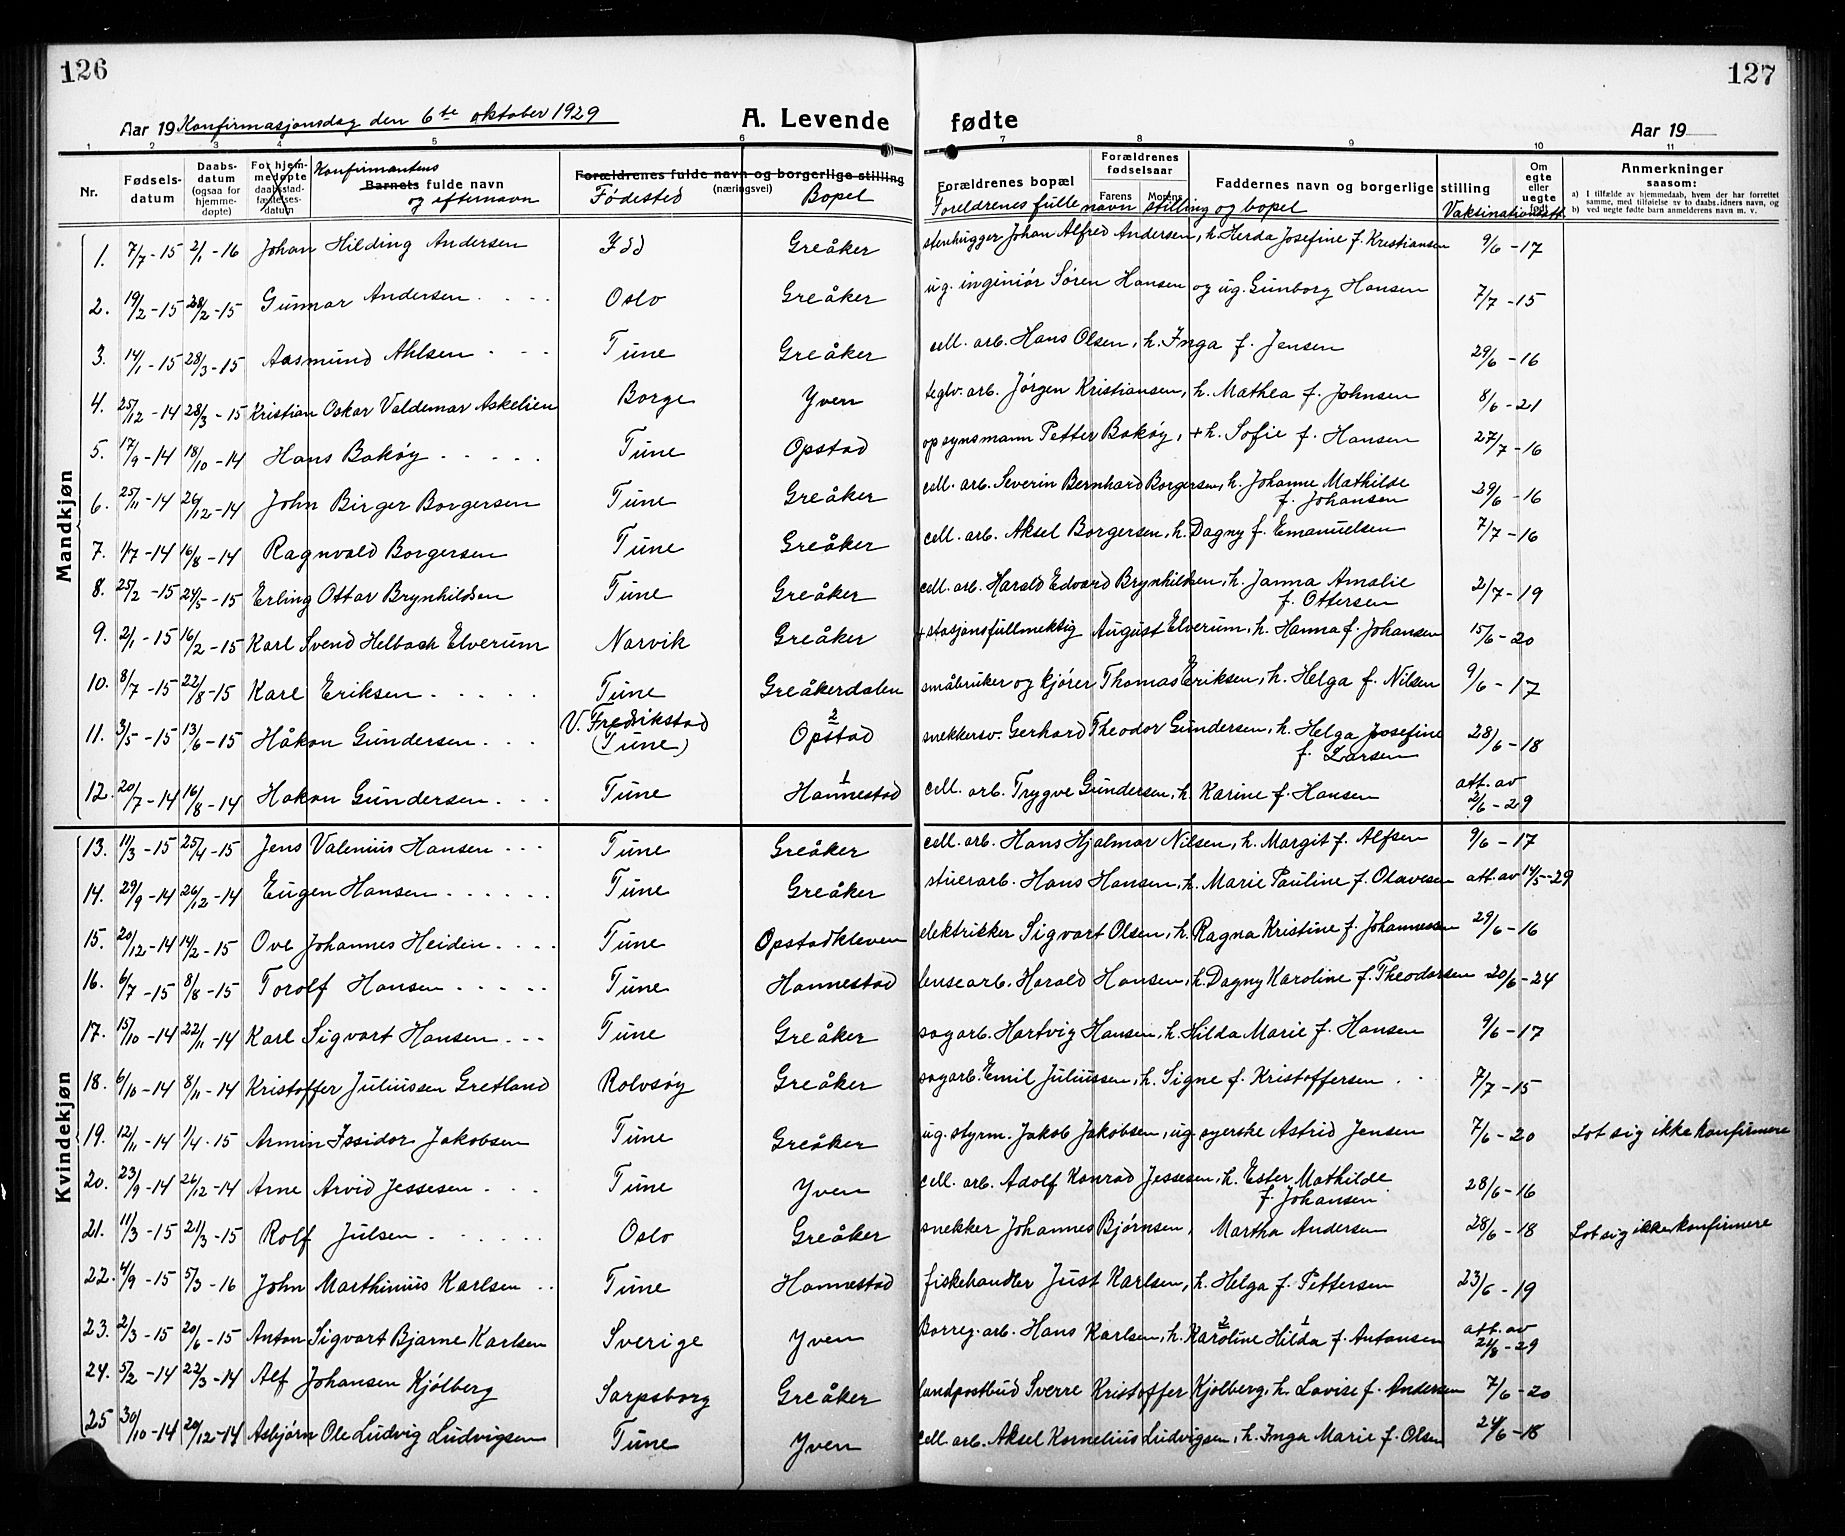 126
127
Aar 19 Konfirmasjonsdag den 6te oktober 1929 A. Levende fødte Aar 19
1 2 3 4 5 6 7 8 9 10 11
Nr. Fødsels-datum Daabs-datum (ogsaa for hjemme-døpte) For hjem-medøpte daabsstad-fæstelses-datum Konfirmantens Barnets fulde navn og efternavn Forældrenes fulde navn og borgerlige stilling (næringsvei) Fødested Bopel Forældrenes bopæl Forældrenes fødselsaar Farens Morens Faddernes navn og borgerlige stilling Foreldrenes fulle navn stilling og bopel Vaksinationsatt. Om egte eller uegte født Anmerkninger saasom:
a) I tilfælde av hjemmedaab, hvem der har forrettet samme, med tilføielse av to daabsvidners navn, og
b) ved uegte fødte barn anmelderens navn m. v.
Mandkjøn
1. 7/7-15 2/1-16 Johan Hilding Andersen Idd Greåker stenhugger Johan Alfred Andersen, h. Herda Josefine f. Kristiansen 9/6-17
2. 19/2-15 28/2-15 Gunnar Andersen Oslo Greåker ug. ingeniør Søren Hansen og ug. Gunborg Hansen 7/7-15
3. 14/1-15 28/3-15 Aasmund Ahlsen Tune Greåker cell. arb. Hans Olsen, h. Inga f. Jensen 29/6-16
4. 25/12-14 28/3-15 Kristian Oskar Valdemar Askelien Borge Yven teglv. arb. Jørgen Kristiansen, h. Mathea f. Johnsen 8/6-21
5. 17/9-14 18/10-14 Hans Bakøy Tune Opstad opsynsmann Petter Bakøy, + h. Sofie f. Hansen 27/7-16
6. 25/11-14 26/12-14 John Birger Borgersen Tune Greåker cell. arb. Severin Bernhard Borgersen, h. Johanne Mathilde f. Johansen 29/6-16
7. 1/7-14 16/8-14 Ragnvald Borgersen Tune Greåker cell. arb. Aksel Borgersen, h. Dagny f. Emanuelsen 7/7-16
8. 25/2-15 24/5-15 Erling Ottar Brynhildsen Tune Greåker cell. arb. Harald Edvard Brynhildsen, h. Janna Amalie f. Ottersen 2/7-19
9. 2/1-15 16/2-15 Karl Svend Helbach Elverum Narvik Greåker + stasjonsfullmektig August Elverum, h. Hanna f. Johansen 15/6-20
10. 8/7-15 22/8-15 Karl Eriksen Tune Greåkerdalen småbruker og kjører Thomas Eriksen, h. Helga f. Nilsen 9/6-17
11. 3/5-15 13/6-15 Håkon Gundersen V. Fredrikstad (Tune) 2 Opstad snekkersv. Gerhard Theodor Gundersen, h. Helga Josefine f. Larsen 28/6-18
12. 20/7-14 16/8-14 Hakon Gundersen Tune 1 Hannestad cell. arb. Trygve Gundersen, h. Karine f. Hansen att. av 2/6-29
Kvindekjøn
13. 11/3-15 25/4-15 Jens Valenius Hansen Tune Greåker cell. arb. Hans Hjalmar Nilsen, h. Margit f. Alfsen 9/6-17
14. 29/9-14 26/12-14 Eugen Hansen Tune Greåker stuerarb. Hans Hansen, h. Marie Pauline f. Olavesen att. av 14/5-29
15. 20/12-14 14/2-15 Ove Johannes Heiden Tune Opstadkleven elektrikker Sigvart Olsen, h. Ragna Kristine f. Johannessen 29/6-16
16. 6/7-15 8/8-15 Torolf Hansen Tune Hannestad lensearb. Harald Hansen, h. Dagny Karoline f. Theodorsen 20/6-24
17. 15/10-14 22/11-14 Karl Sigvart Hansen Tune Greåker sagarb. Hartvig Hansen, h. Hilda Marie f. Hansen 9/6-17
18. 6/10-14 8/11-14 Kristoffer Juliussen Gretland Rolvsøy Greåker sagarb. Emil Juliussen, h. Signe f. Kristoffersen 7/7-15
19. 12/11-14 1/4-15 Armin Issidor Jakobsen Tune Greåker ug. styrm. Jakob Jakobsen, ug. syerske Astrid Jensen 7/6-20 Lot sig ikke konfirmere
20. 23/9-14 26/12-14 Arne Arvid Jessesen Tune Yven cell. arb. Adolf Konrad Jessesen, h. Ester Mathilde f. Johansen 28/6-16
21. 11/3-15 21/3-15 Rolf Julsen Oslo Greåker snekker Johannes Bjørnsen, Martha Andersen 28/6-18 Lot sig ikke konfirmere
22. 4/9-15 5/3-16 John Marthinius Karlsen Tune Hannestad fiskehandler Just Karlsen, h. Helga f. Pettersen 23/6-19
23. 2/3-15 20/6-15 Anton Sigvart Bjarne Karlsen Sverige Yven Borreg. arb. Hans Karlsen, h. 2 Karoline 1 Hilda f. Antonsen att. av 24/8-29
24. 5/2-14 22/3-14 Alf Johansen Kjølberg Sarpsborg Greåker landpostbud Sverre Kristoffer Kjølberg, h. Lovise f. Andersen 7/6-20
25 30/10-14 20/12-14 Asbjørn Ole Ludvig Ludvigsen Tune Yven cell. arb. Aksel Kornelius Ludvigsen, h. Inga Marie f. Olsen 24/6-18